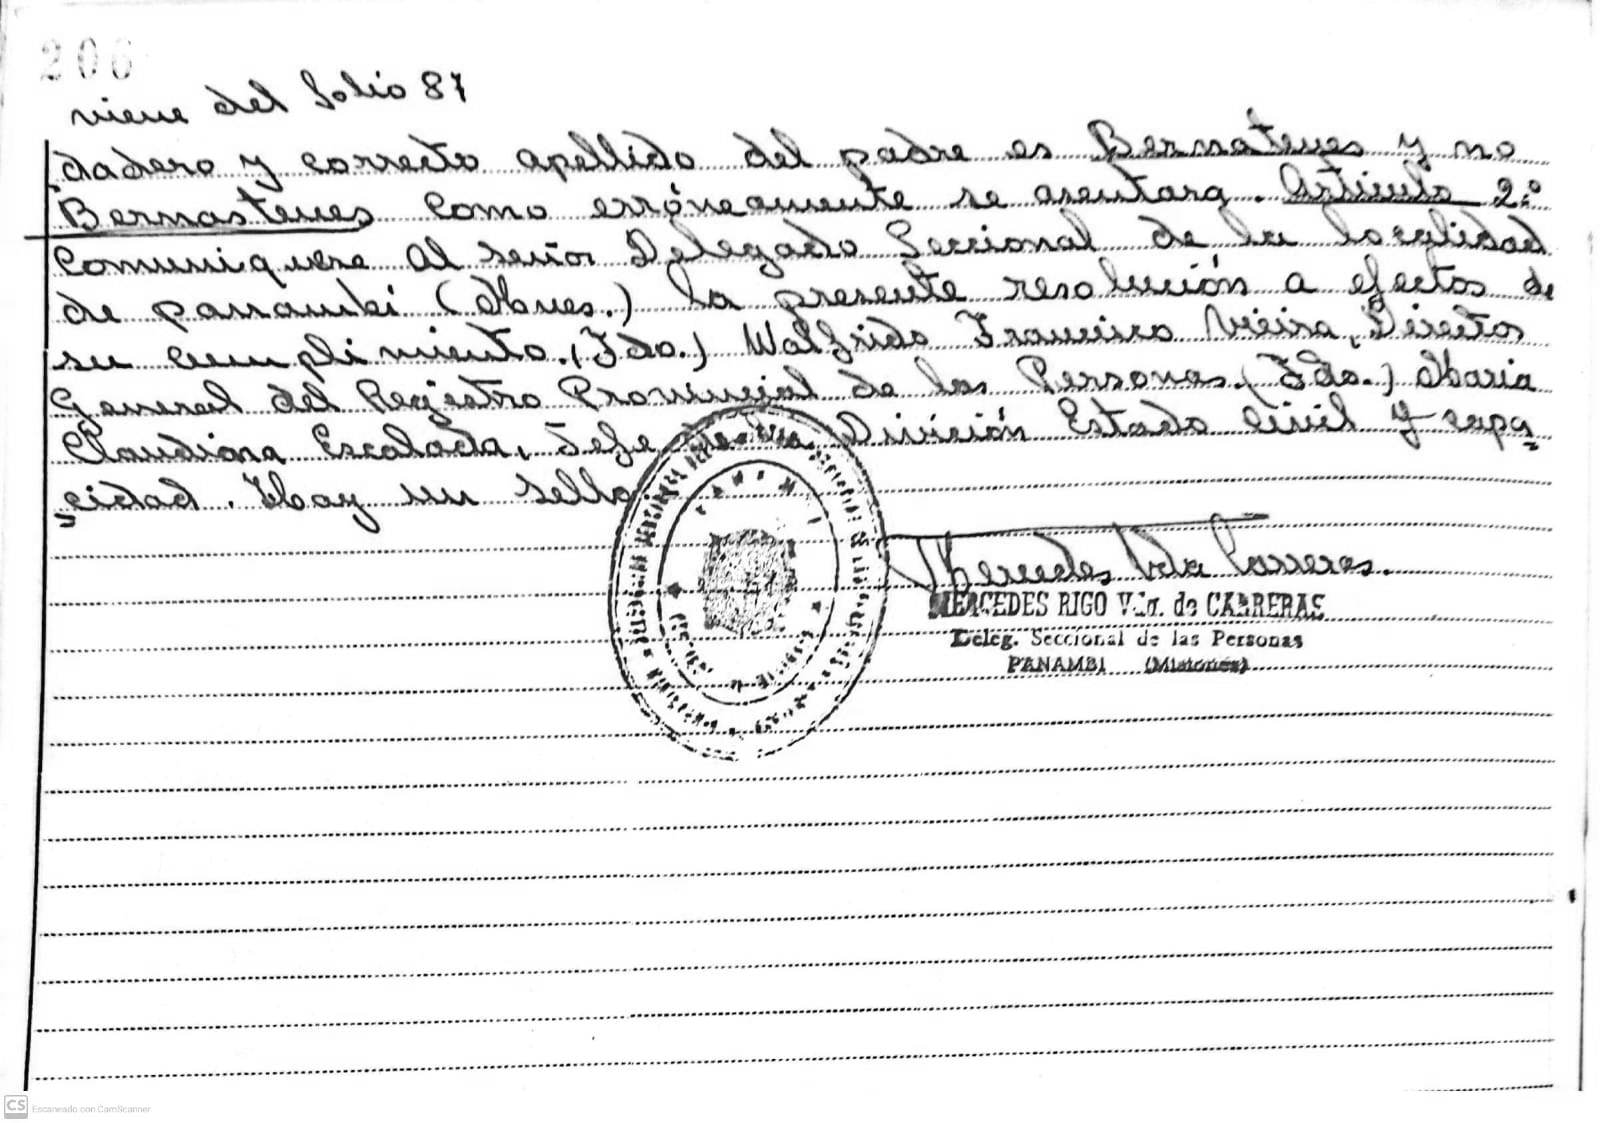 206
viene del folio 87
dadero y correcto apellido del padre es Bernateves y no
Bernasteves como erróneamente se asentara. Artículo 2º
Comuniquese Al señor Delegado Seccional de la localidad
de panambí (Mnes.) la presente resolución a efectos de
su cumplimiento. (Fdo.) Walfrido Francisco Vieira, Director
General del Registro Provincial de las Personas. (Fdo.) Maria
Claudiona Escalada, Jefe de la División Estado Civil y capa
cidad. Hay un sello
PANAMBI
Mercedes Vda Carreras.
MERCEDES RIGO Vda. de CARRERAS
Deleg. Seccional de las Personas
PANAMBI (Misiones)
CS Escaneado con CamScanner